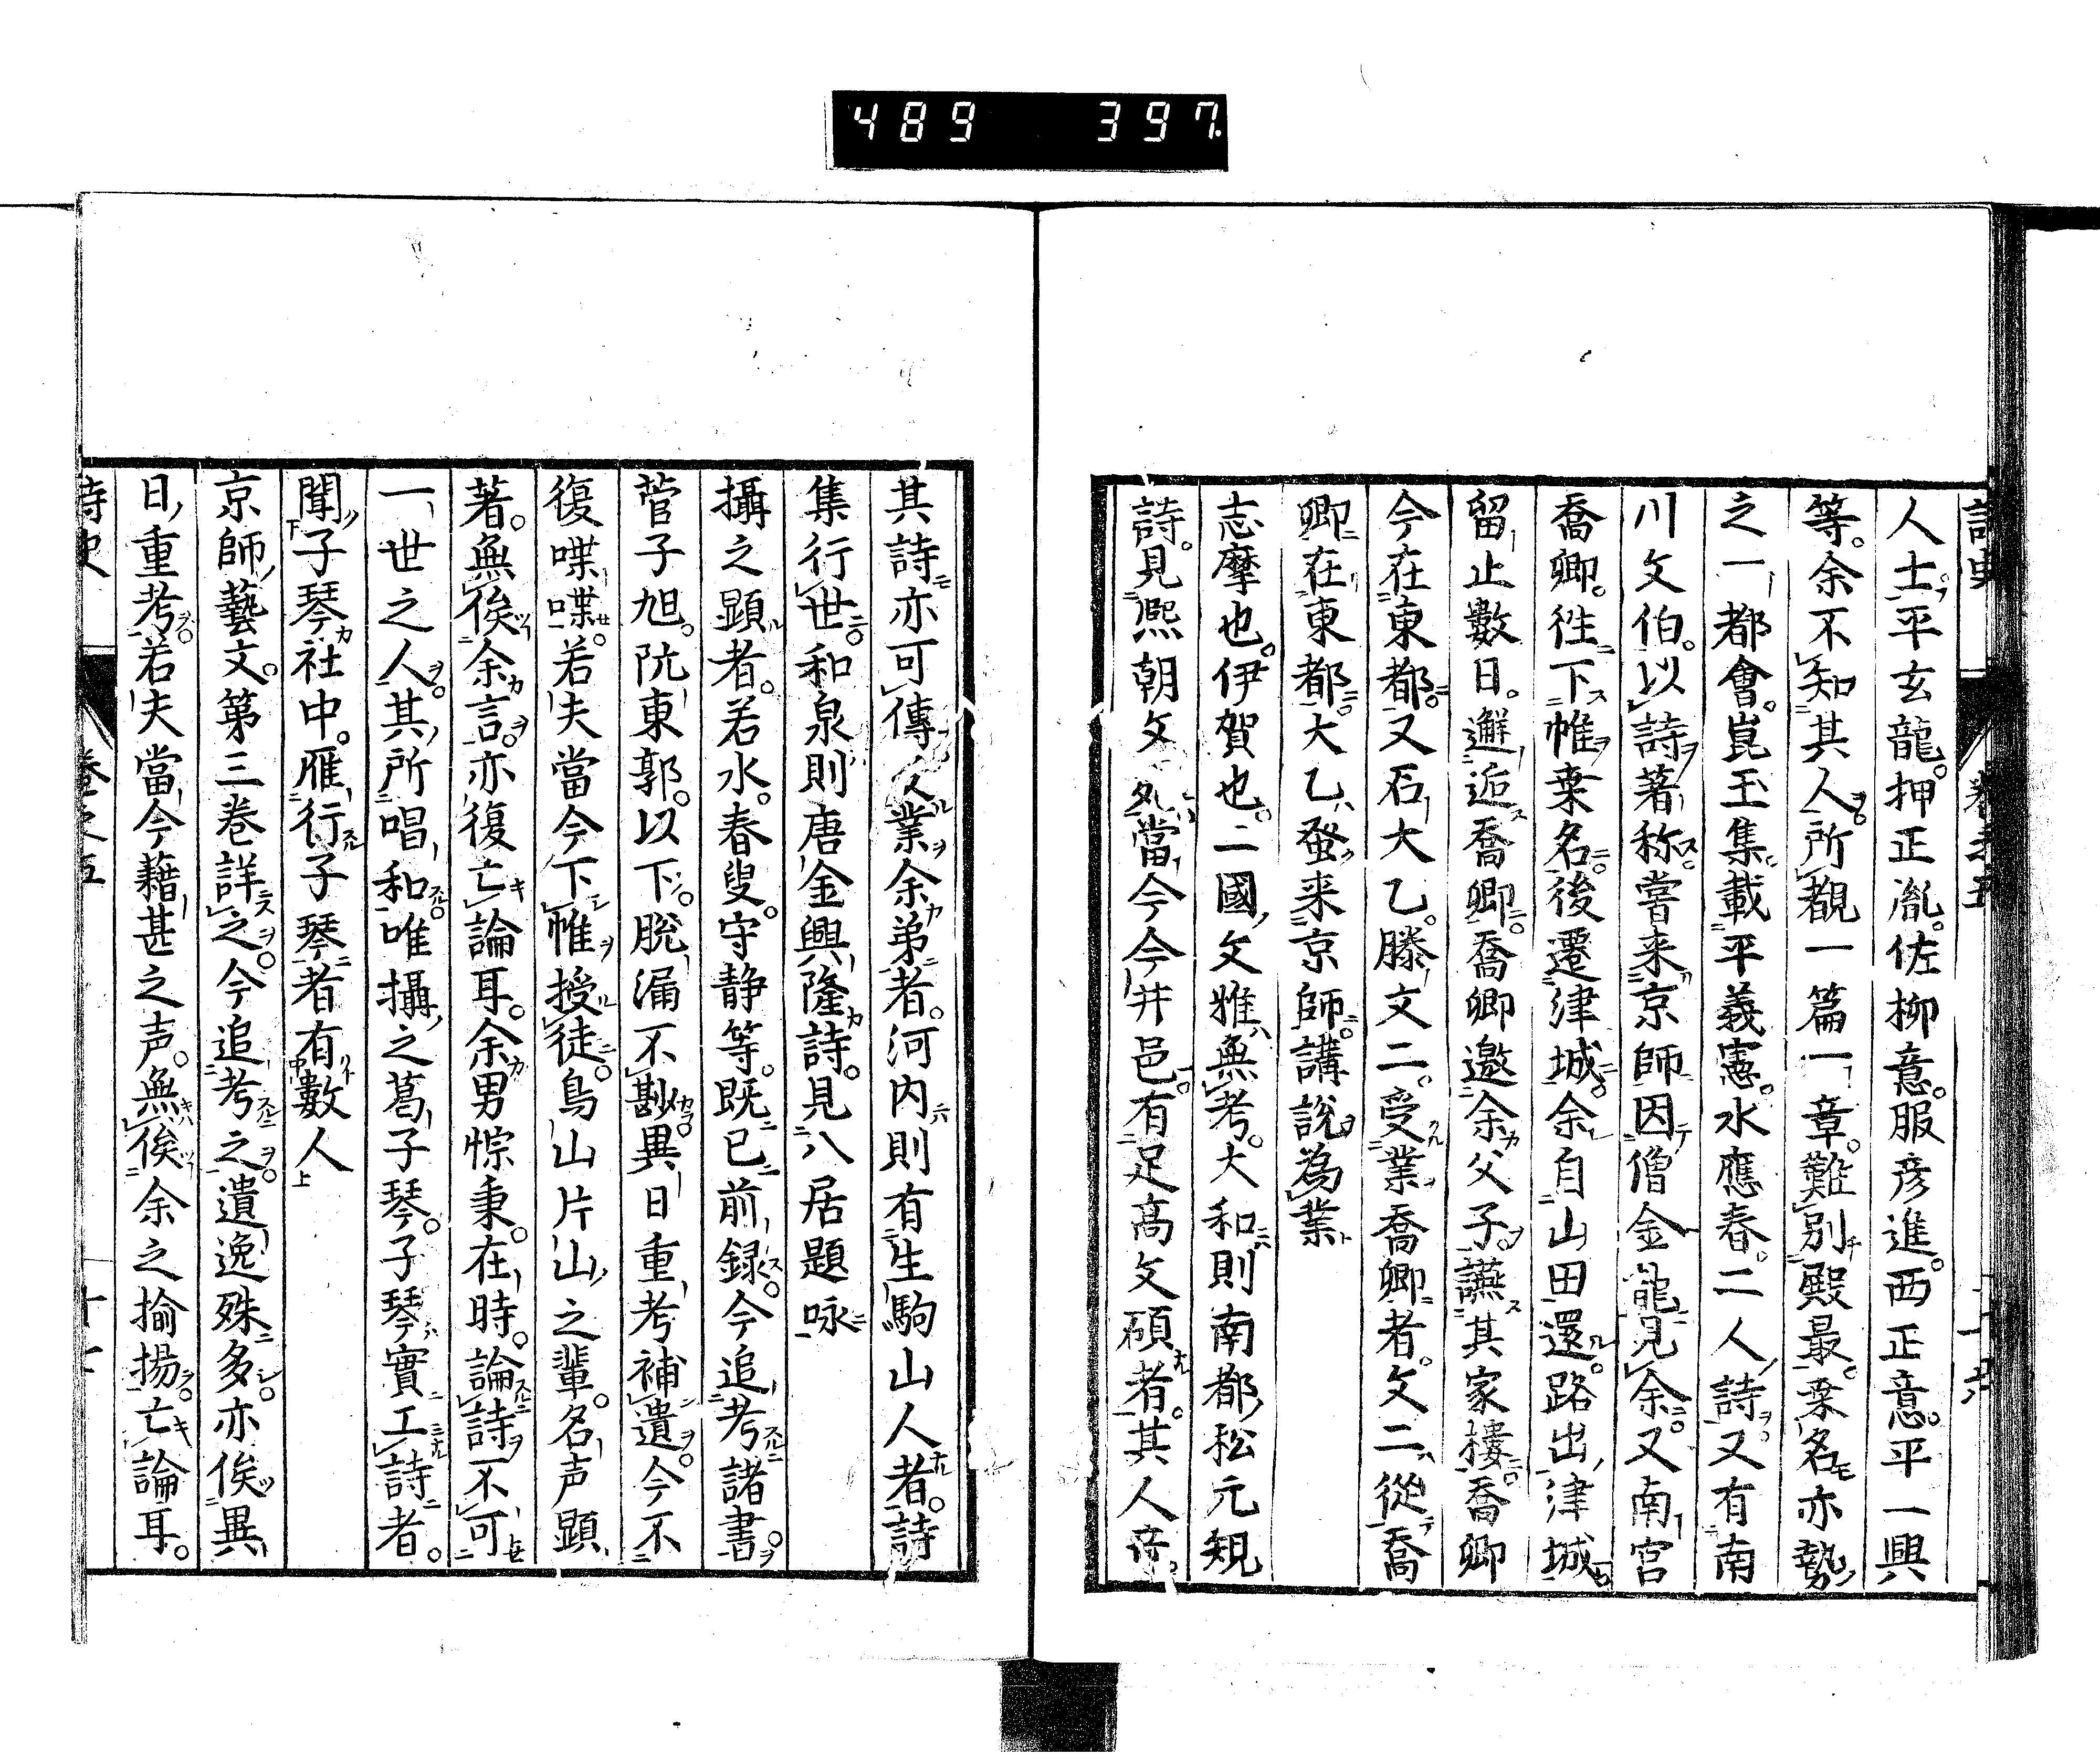 489 397
人士平玄龍。押正胤。佐柳意。服彦進。西正意。平一興
等。余不知其人。所覩一篇一章。難別殿最。桑名亦勢
之一都會。崑玉集載平義憲。水應春。二人詩。又有南
川文伯。以詩著称。嘗来京師。因僧金龍見余。又南宮
喬卿。徃下帷桒名。後遷津城。余自山田還。路出津城。
留止數日。邂逅喬卿。喬卿邀余父子。讌其家樓。喬卿
今在東都。又石大乙。滕文二。受業喬卿者。文二從喬
卿在東都。大乙蚤来京師。講説為業
志摩也。伊賀也。二國文雅無考。大和則南都松元規
詩。見熈朝文 當今今井邑。有足高文碩者。其人
其詩亦可傳 業余弟者。河内則有生駒山人者。詩
集行世。和泉則唐金興隆詩。見八居題咏
攝之顕者。若水。春叟。守静等。既已前録。今追考諸書。
菅子旭。阮東郭。以下。脱漏不尠。異日重考補遺。今不
復喋喋。若夫當今下帷授徒。鳥山片山之輩。名声顕
著。無俟余言。亦復亡論耳。余男悰秉。在時。論詩不可
一世之人。其所唱和唯攝之葛子琴。子琴實工詩者。
聞子琴社中。雁行子琴者有數人
京師藝文。第三巻詳之。今追考之。遺逸殊多。亦俟異
日重考。若夫當今藉甚之声。無俟余之揄揚。亡論耳。
詩史 巻之五